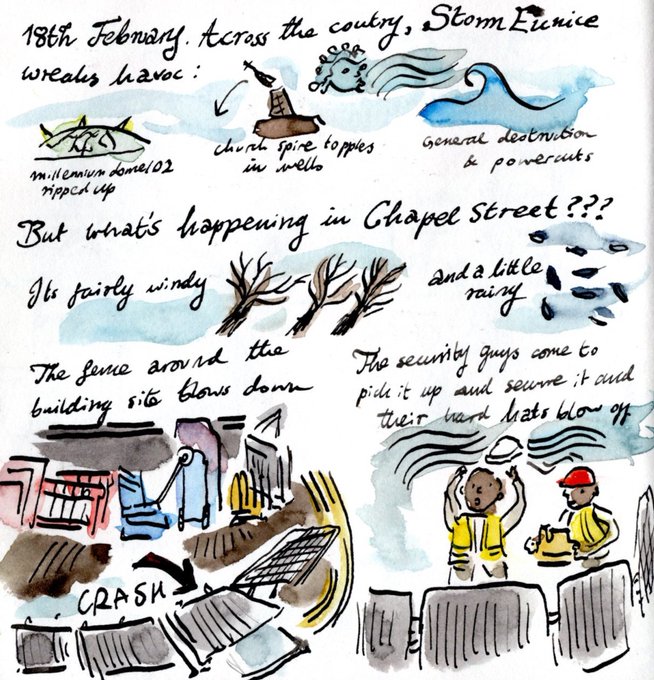 18th February. Across the coutry, Storm Eunice
wreaks havoc:
millennium dome/O2
ripped up
church spire topples
in wells
General destruction
& powercuts
But what's happening in Chapel Street???
Its fairly windy
and a little
rainy
The fence around the
building site blows down
The security guys come to
pick it up and secure it and
their hard hats blow off
CRASH